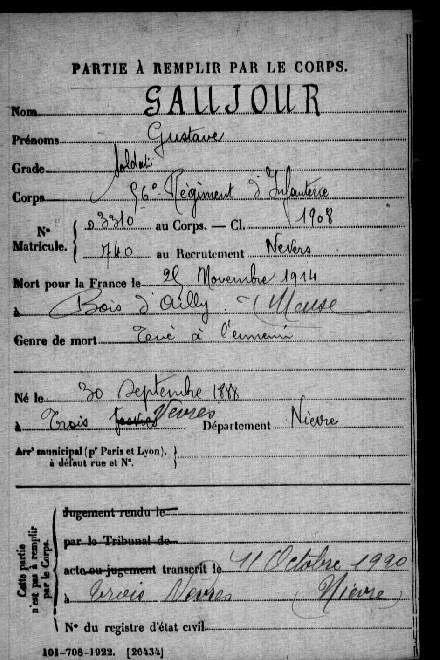 PARTIE À REMPLIR PAR LE CORPS.
Nom SAUJOUR
Prénoms Gustave
Grade Soldat
Corps 56e Régiment d'Infanterie
N° Matricule. { 03310 au Corps. — Cl. 1908
740 au Recrutement Nevers
Mort pour la France le 25 Novembre 1914
à Bois d'Ailly (Meuse
Genre de mort Tué à l'ennemi
Né le 30 Septembre 1888
à Trois Vevres Département Nièvre
Arrt municipal (pr Paris et Lyon), à défaut rue et N°. }
Cette partie n'est pas à remplir par le Corps. {
Jugement rendu le
par le Tribunal de
acte ou jugement transcrit le 11 Octobre 1920
à Trois Vevres (Nièvre)
N° du registre d'état civil
101-708-1922. [26434]